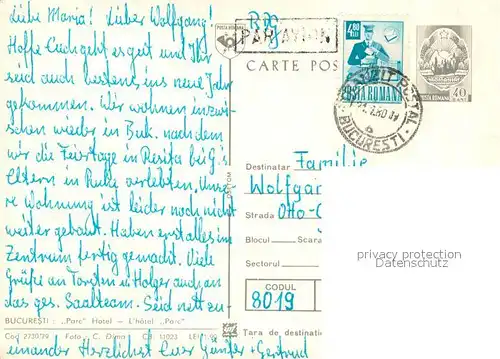 Liebe Maria! Lieber Wolfgang!
Hoffe Euch geht es gut und Ihr
seid auch bestens, ins neue Jahr
gekommen. Wir wohnen inzwi-
schen wieder in Buk. nachdem
wir die Feiertage in Resita bei G.'s
Eltern in Ruhe verlebten, Unse-
re Wohnung ist leider noch nicht
weiter gebaut. Haben erst alles im
Zentrum fertig gemacht. Viele
Grüße an Torsten u. Holger auch an
das ges. Saalteam. Seid nett zu-
BUCUREȘTI : „Parc" Hotel — L'hôtel „Parc"
Cod 2730/79 Foto - C. Dima CB. 13023 LEI
einander Herzlichst Euer Günter + Gertrud
POSTA ROMANA
PAR AVION
CARTE POS
4,80
LEI
POSTA ROMANA
POSTA ROMANA
40
BANI
BUCURESTI
6
Destinatar Familie
Wolfgan
Strada Otto-
Blocul Scara
Sectorul
CODUL
8019
Tara de destinati
privacy protection
Datenschutz